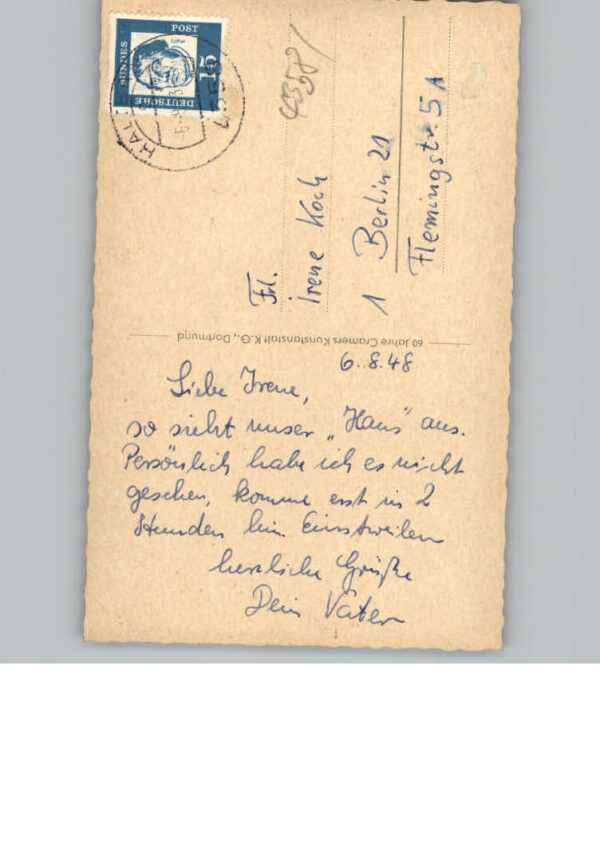 DEUTSCHE
BUNDES
POST
15
Luther
HAL
44558/
Frl.
Irene Koch
1 Berlin 21
Flemingstr. 5A
60 Jahre Cramers Kunstanstalt K.G., Dortmund
6.8.48
Liebe Irene,
so sieht unser „Haus" aus.
Persönlich habe ich es nicht
gesehen, komme erst in 2
Stunden hin. Einstweilen
herzliche Grüße
Dein Vater